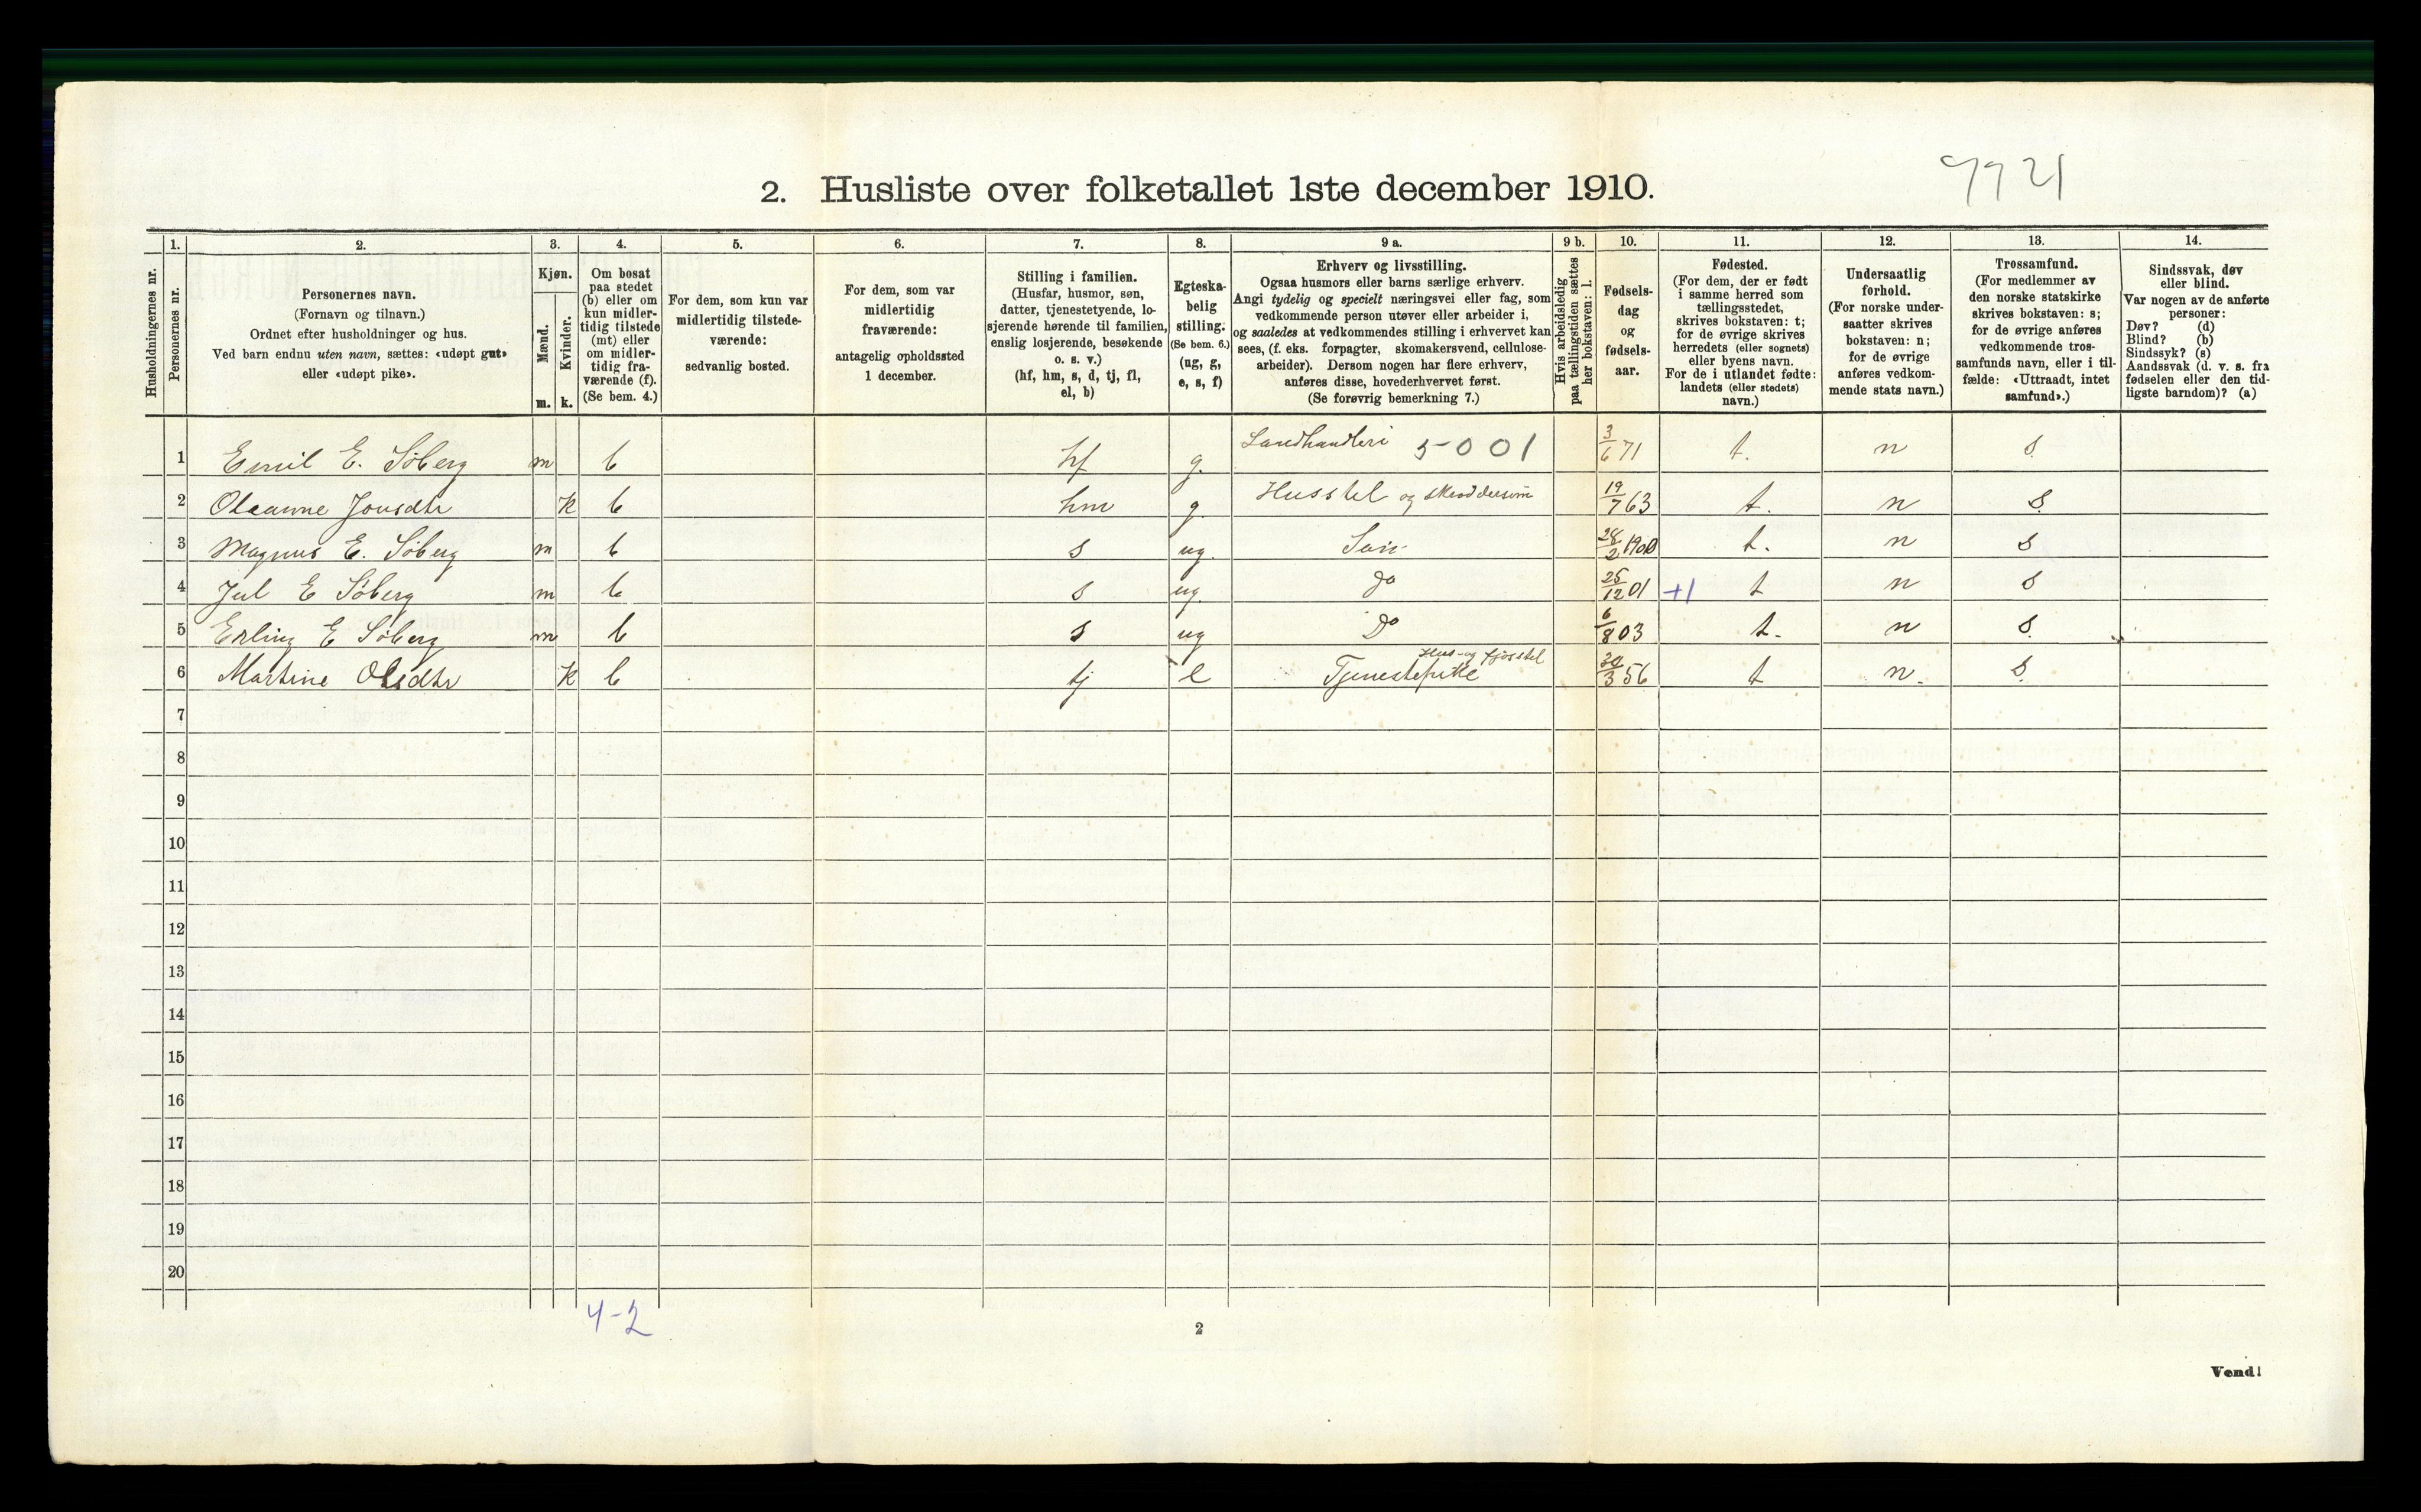 9921
2. Husliste over folketallet 1ste december 1910.
Husholdningernes nr.
1. Personernes nr.
2. Personernes navn.
(Fornavn og tilnavn.)
Ordnet efter husholdninger og hus.
Ved barn endnu uten navn, sættes: «udøpt gut»
eller «udøpt pike».
3. Kjøn.
Mænd. m.
Kvinder. k.
4. Om bosat
paa stedet
(b) eller om
kun midler-
tidig tilstede
(mt) eller
om midler-
tidig fra-
værende (f).
(Se bem. 4.)
5. For dem, som kun var
midlertidig tilstede-
værende:
sedvanlig bosted.
6. For dem, som var
midlertidig
fraværende:
antagelig opholdssted
1 december.
7. Stilling i familien.
(Husfar, husmor, søn,
datter, tjenestetyende, lo-
sjerende hørende til familien,
enslig losjerende, besøkende
o. s. v.)
(hf, hm, s, d, tj, fl,
el, b)
8. Egteska-
belig
stilling.
(Se bem. 6.)
(ug, g,
e, s, f)
9 a. Erhverv og livsstilling.
Ogsaa husmors eller barns særlige erhverv.
Angi tydelig og specielt næringsvei eller fag, som
vedkommende person utøver eller arbeider i,
og saaledes at vedkommendes stilling i erhvervet kan
sees, (f. eks. forpagter, skomakersvend, cellulose-
arbeider). Dersom nogen har flere erhverv,
anføres disse, hovederhvervet først.
(Se forøvrig bemerkning 7.)
9 b. Hvis arbeidsledig
paa tællingstiden sættes
her bokstaven: l.
10. Fødsels-
dag
og
fødsels-
aar.
11. Fødested.
(For dem, der er født
i samme herred som
tællingsstedet,
skrives bokstaven: t;
for de øvrige skrives
herredets (eller sognets)
eller byens navn.
For de i utlandet fødte:
landets (eller stedets)
navn.)
12. Undersaatlig
forhold.
(For norske under-
saatter skrives
bokstaven: n;
for de øvrige
anføres vedkom-
mende stats navn.)
13. Trossamfund.
(For medlemmer av
den norske statskirke
skrives bokstaven: s;
for de øvrige anføres
vedkommende tros-
samfunds navn, eller i til-
fælde: «Uttraadt, intet
samfund».)
14. Sindssvak, døv
eller blind.
Var nogen av de anførte
personer:
Døv? (d)
Blind? (b)
Sindssyk? (s)
Aandssvak (d. v. s. fra
fødselen eller den tid-
ligste barndom)? (a)
1 Emil E. Søberg m b hf g. Landhandleri 5-001 3/6 71 t. n s.
2 Oleanne Jonsdtr k b hm g. Husstel og skreddersøm 19/7 63 t. n s.
3 Magnus E. Søberg m b s ug. Søn 28/2 1900 t. n s
4 Jul E Søberg m b s ug. Do 25/12 01 +1 t n s
5 Erling E Søberg m b s ug Do 6/8 03 t. n s.
6 Martine Olsdtr k b tj e Tjenestepike Hus- og fjøsstel 30/3 56 t n. s.
7
8
9
10
11
12
13
14
15
16
17
18
19
20
4-2
2
Vend!